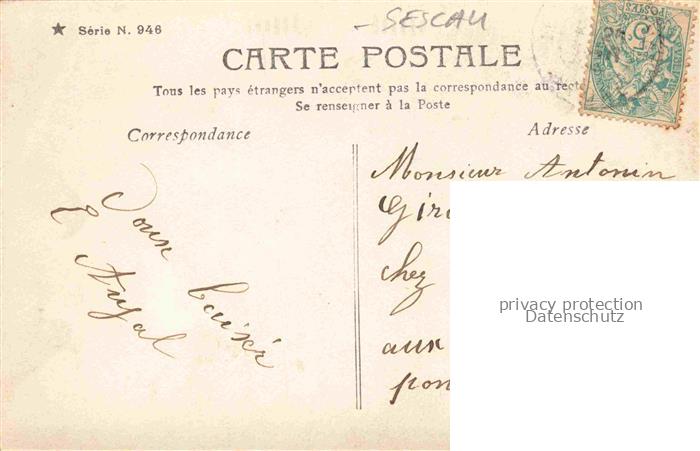 SESCAU
★ Série N. 946
CARTE POSTALE
POSTES
5
Tous les pays étrangers n'acceptent pas la correspondance au recto
Se renseigner à la Poste
Correspondance
Adresse
Doux baisér
Monsieur Antonin
Gir
chez
aux
pon
privacy protection
Datenschutz